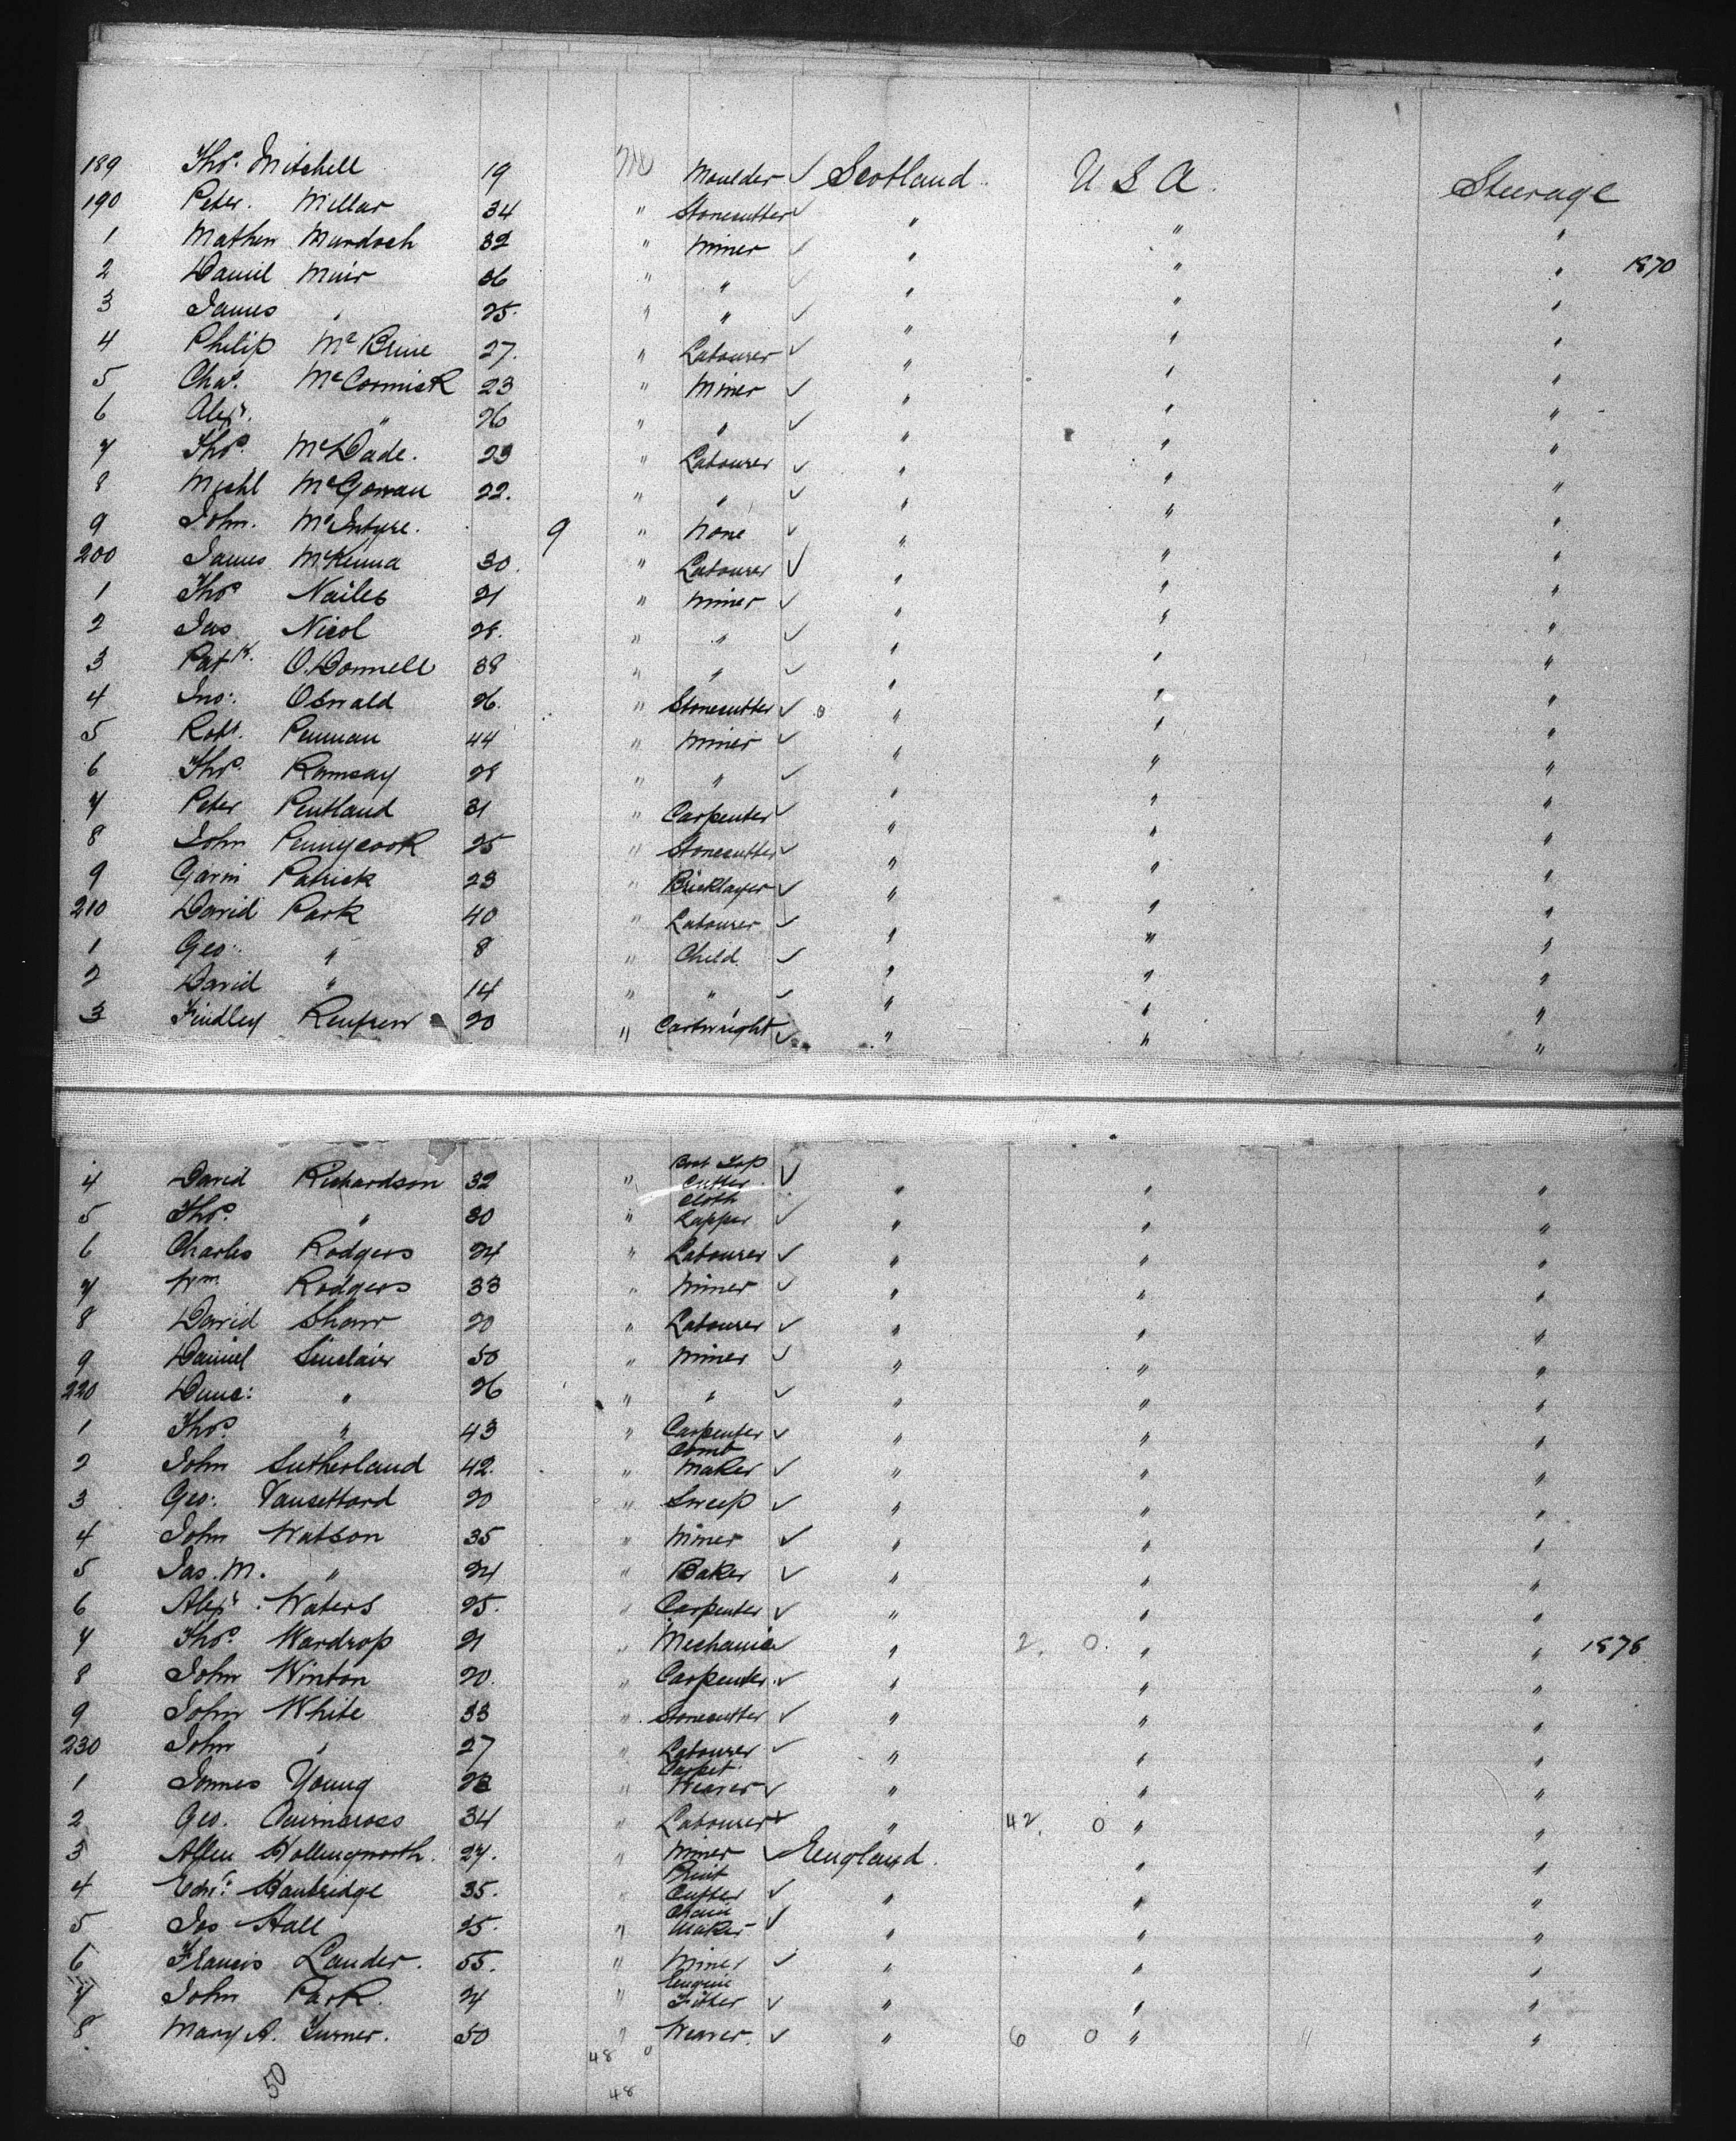 189 Thos. Mitchell 19 M Moulder ✓ Scotland. U S A. Steerage
190 Peter. Millar 34 " Stonecutter ✓ " " "
1 Mathew Murdoch 32 " Miner ✓ " " " 1870
2 Daniel Muir 36 " " ✓ " " "
3 James " 25. " " ✓ " " "
4 Philip McBrine 27. " Labourer ✓ " " "
5 Chas. McCormick 23 " Miner ✓ " " "
6 Alexr. " 26 " " ✓ " " "
7 Thos. McDade. 23 " Labourer ✓ " " "
8 Michl McGowan 22. " " ✓ " " "
9 John. McIntyre. 9 " None ✓ " " "
200 James McKenna 30. " Labourer ✓ " " "
1 Thos Nailes 21 " Miner ✓ " " "
2 Jas Nicol 28. " " ✓ " " "
3 Patk. O.Donnell 38 " " ✓ " " "
4 Jno: Oswald 26. " Stonecutter ✓ " " "
5 Robt. Penman 44 " Miner ✓ " " "
6 Thos. Ramsay 28 " " ✓ " " "
7 Peter Pentland 31 " Carpenter ✓ " " "
8 John Pennycook 25 " Stonecutter ✓ " " "
9 Gavin Patrick 23 " Bricklayer ✓ " " "
210 David Park 40 " Labourer ✓ " " "
1 Geo: " 8 " Child. ✓ " " "
2 David " 14 " " ✓ " " "
3 Findley Renfrew 20 " Cartwright ✓ " " "
4 David Richardson 32 " Boot Top Cutter ✓ " " "
5 Thos. " 30 " Cloth Lapper ✓ " " "
6 Charles Rodgers 24 " Labourer ✓ " " "
7 Wm Rodgers 33 " Miner ✓ " " "
8 David Shaw 20 " Labourer ✓ " " "
9 Daniel Sinclair 50 " Miner ✓ " " "
220 Dunc: " 26 " " ✓ " " "
1 Thos. " 43 " Carpenter ✓ " " "
2 John Sutherland 42. " Comb Maker ✓ " " "
3 Geo: 20 " Sweep ✓ " " "
4 John Watson 35 " Miner ✓ " " "
5 Jas. M. " 24 " Baker ✓ " " "
6 Alexr. Waters 25. " Carpenter ✓ " " "
7 Thos. Wardrop 21 " Mechanic ✓ " 2. 0. " " 1878
8 John Winton 20. " Carpenter ✓ " " "
9 John White 33 " Stonecutter ✓ " " "
230 John " 27 " Labourer ✓ " " "
1 James Young " Carpet Weaver ✓ " " "
2 Geo. Cairncross 34 " Labourer ✓ " 42. 0 " "
3 Allen Hollingworth. 24. " Miner ✓ England. " "
4 Edwd: 35. " Cutter ✓ " " "
5 Jos Hall 25. " Chain Maker ✓ " " "
6 Francis Lander. 55. " Miner ✓ " " "
7 John Park. 24 " Engine Fitter ✓ " " "
8 Mary A. Turner. 50 " Weaver. ✓ " 6 0 " " "
48 0
50 48